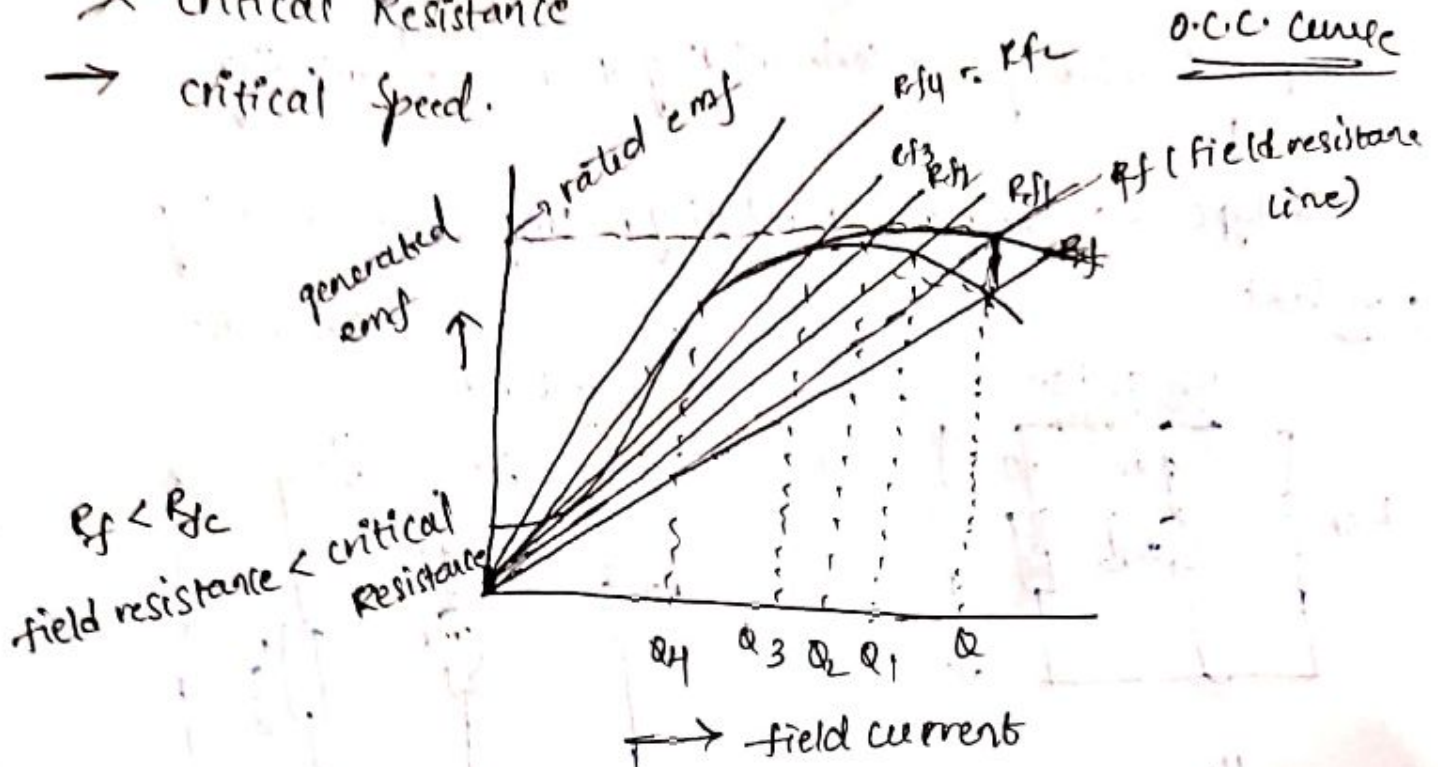 Critical Resistance
→ critical Speed.
O.C.C. Curve
rated emf
Rf4 = Rfc
Rf3
Rf2
Rf1
Rf (field resistance
line)
Rf
generated
emf
Rf < Rfc
field resistance < critical
Resistance
Q4 Q3 Q2 Q1 Q
→ field current